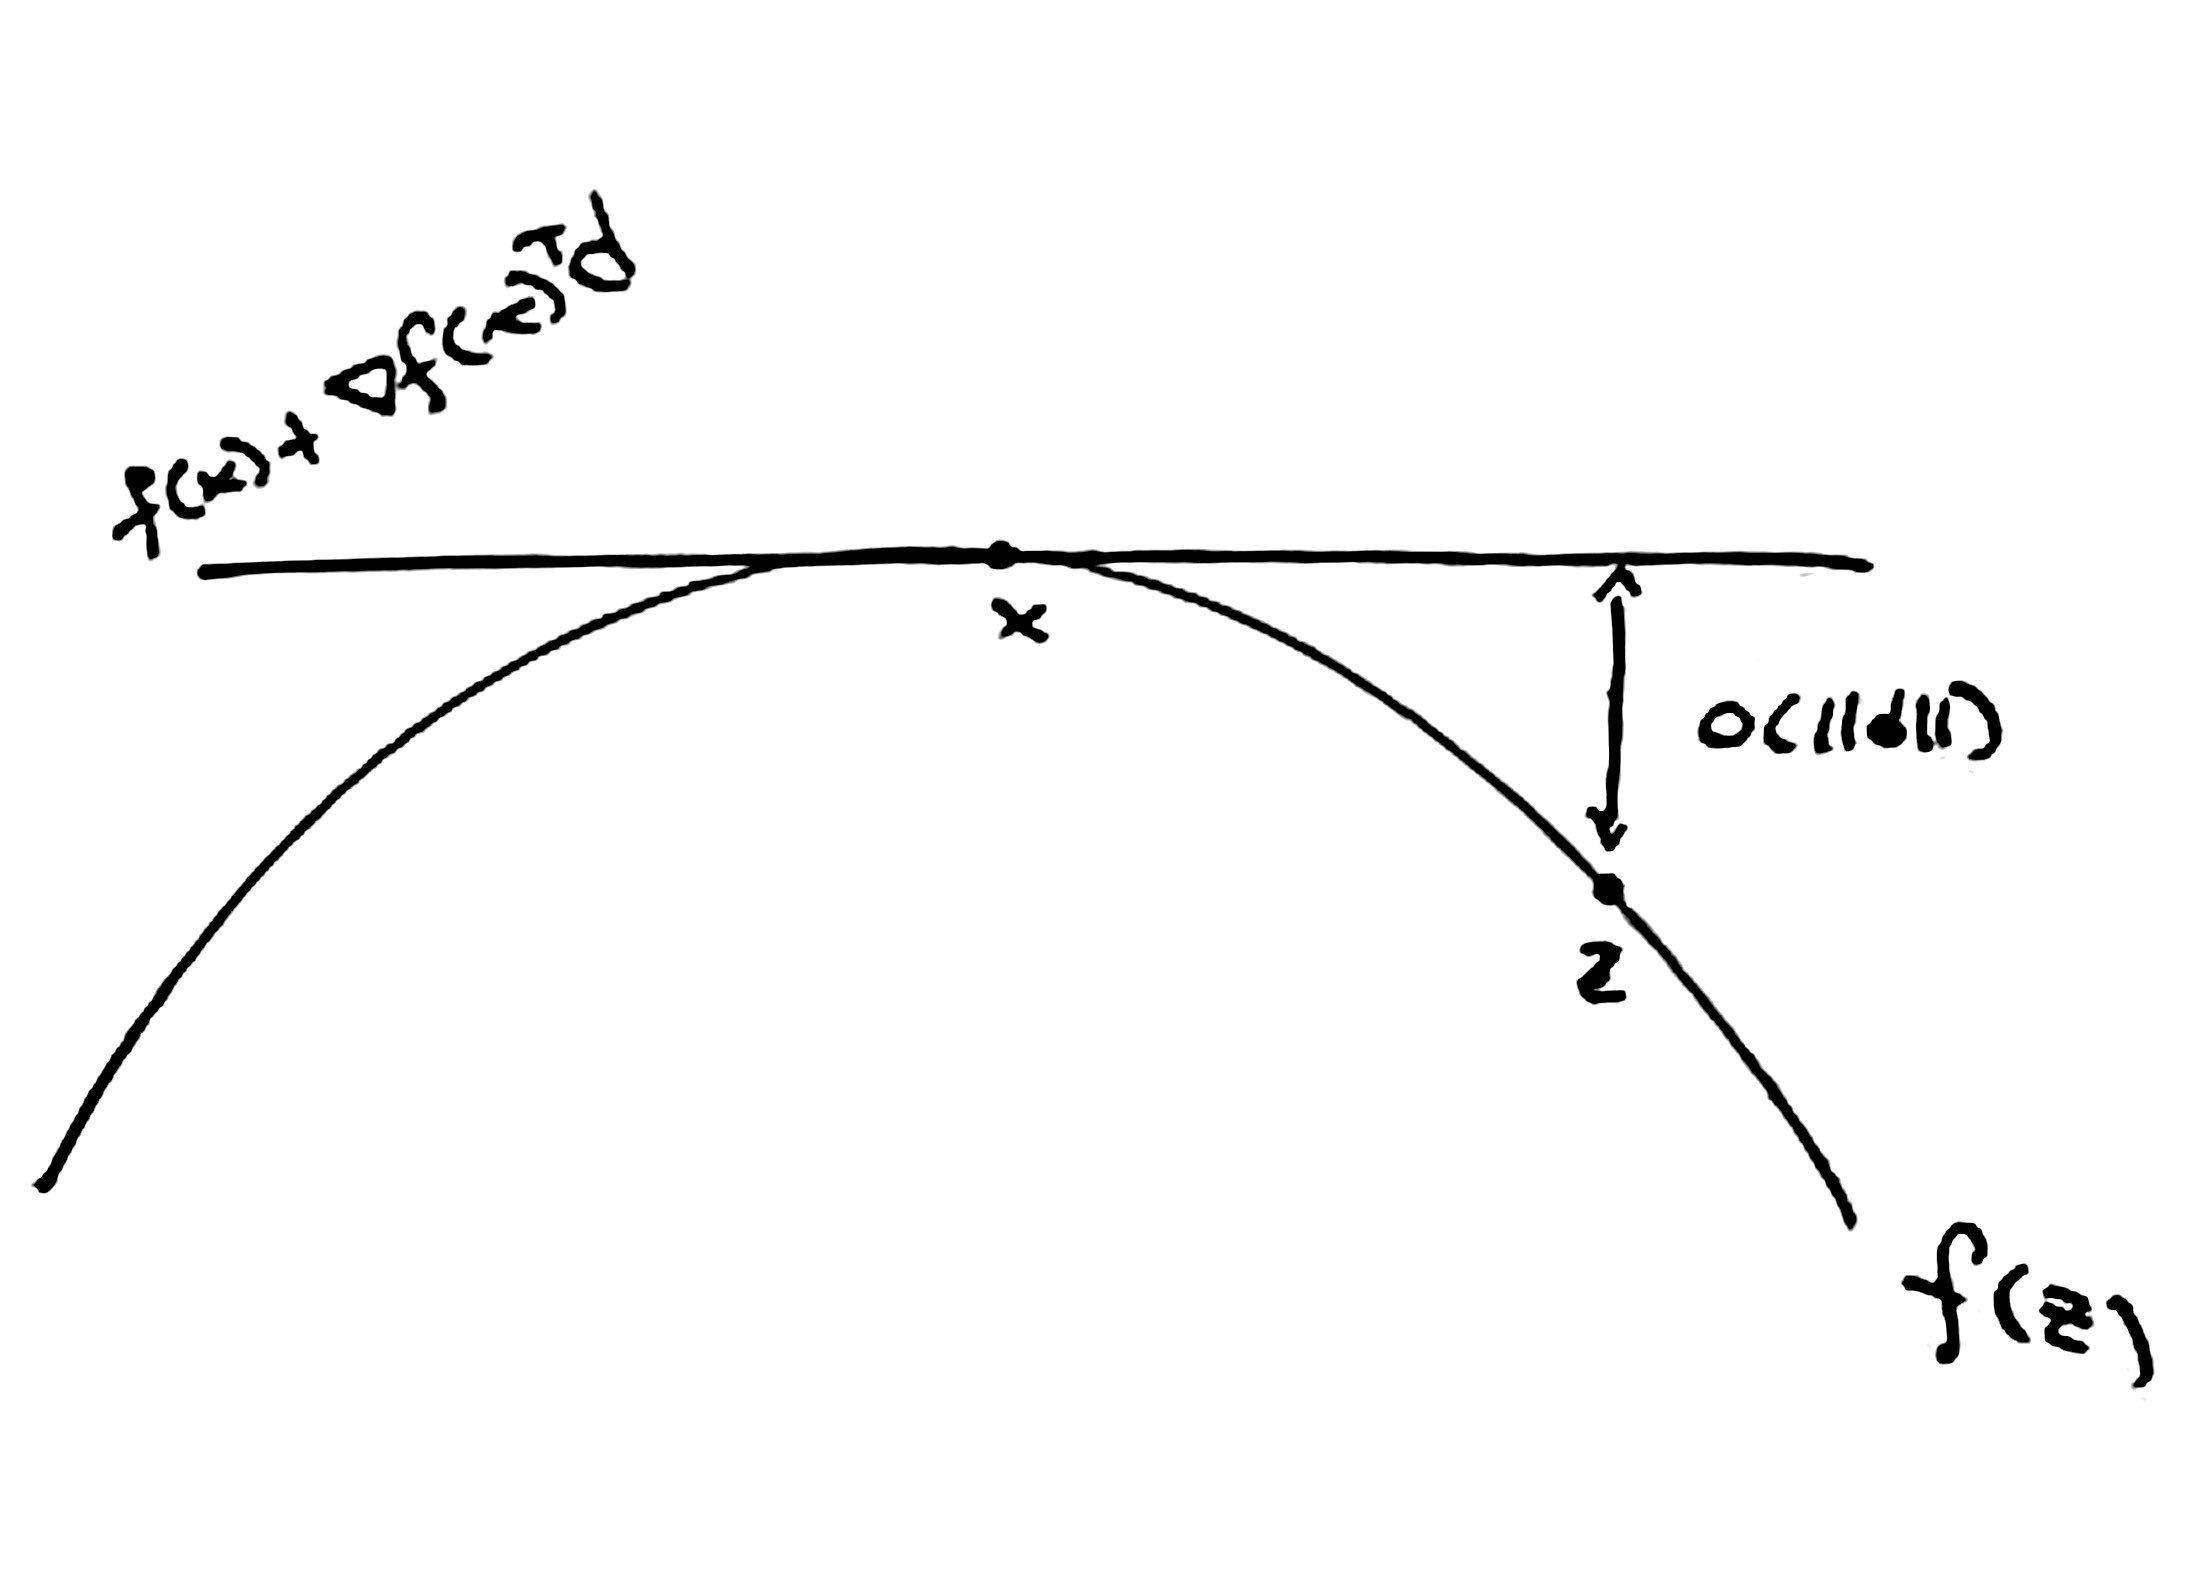 f(x) + ∇f(x)ᵀd
x
o(||d||)
z
f(z)